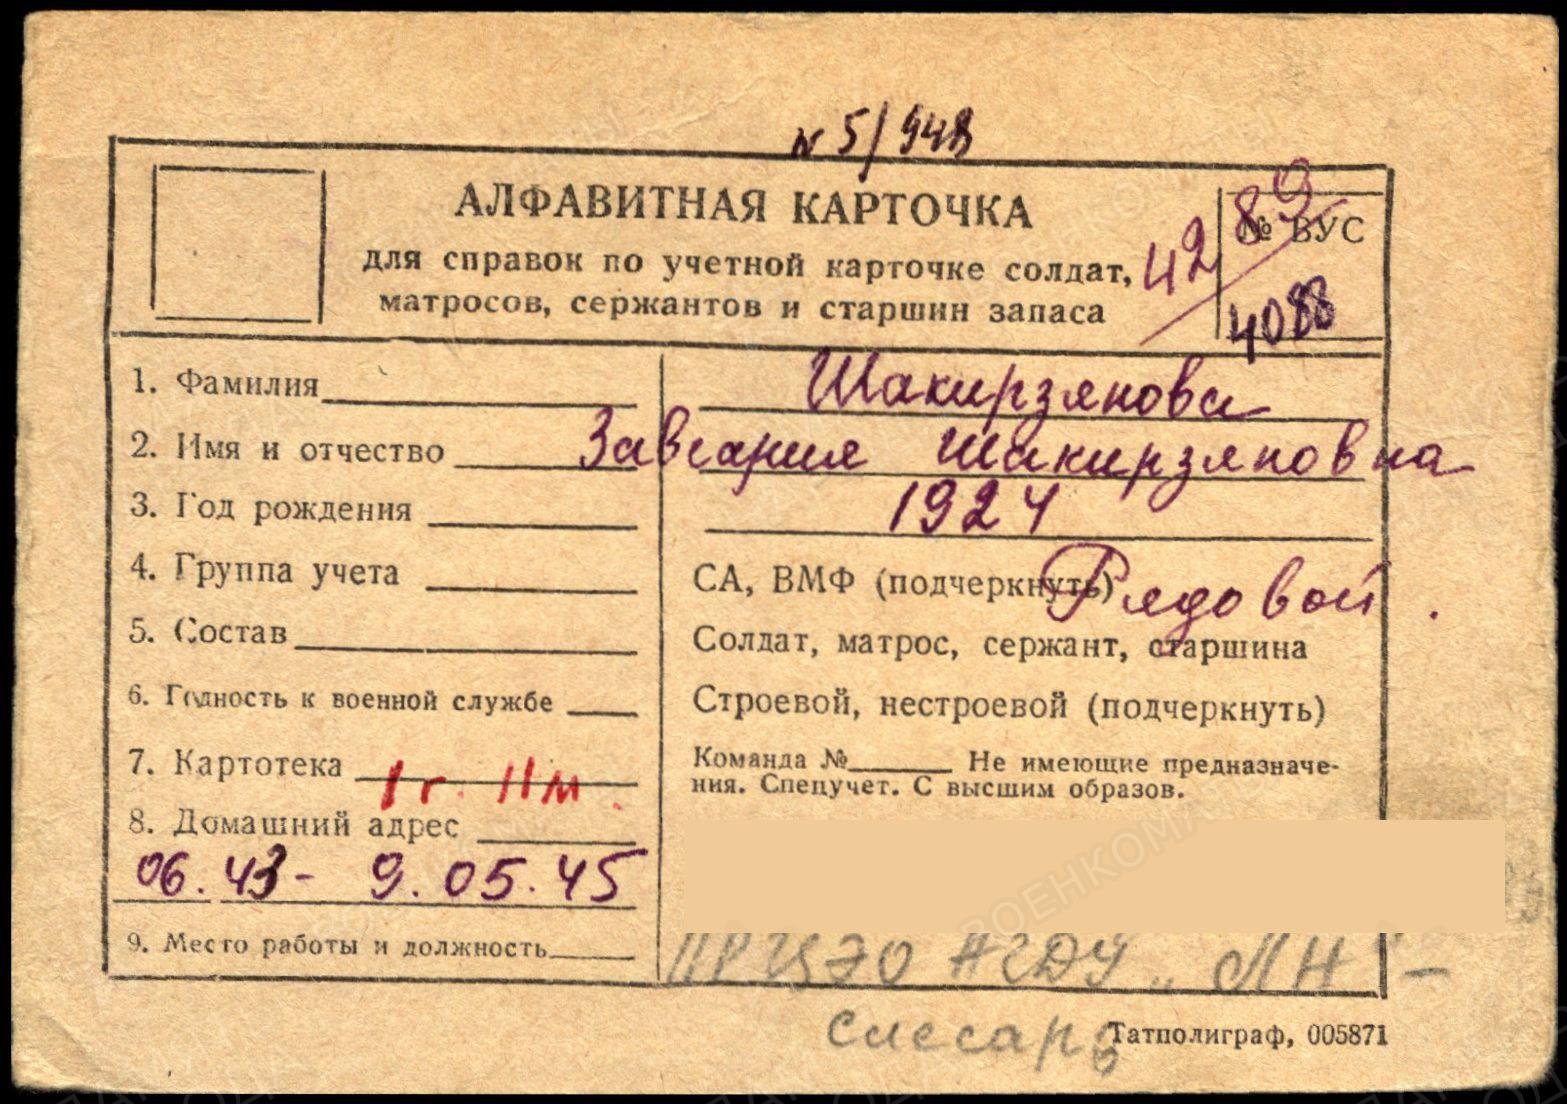 № 5/948
АЛФАВИТНАЯ КАРТОЧКА
для справок по учетной карточке солдат,
матросов, сержантов и старшин запаса
4289
№ ВУС
4088
1. Фамилия Шакирзянова
2. Имя и отчество Завгария Шакирзяновна
3. Год рождения 1924
4. Группа учета СА, ВМФ (подчеркнуть) Рядовой.
5. Состав Солдат, матрос, сержант, старшина
6. Годность к военной службе Строевой, нестроевой (подчеркнуть)
7. Картотека 1 г. 11 м. Команда № Не имеющие предназначе-
ния. Спецучет. С высшим образов.
8. Домашний адрес
06.43 - 9.05.45
9. Место работы и должность ПРЦЭО НГДУ „ЛН"
слесарь
Татполиграф, 005871